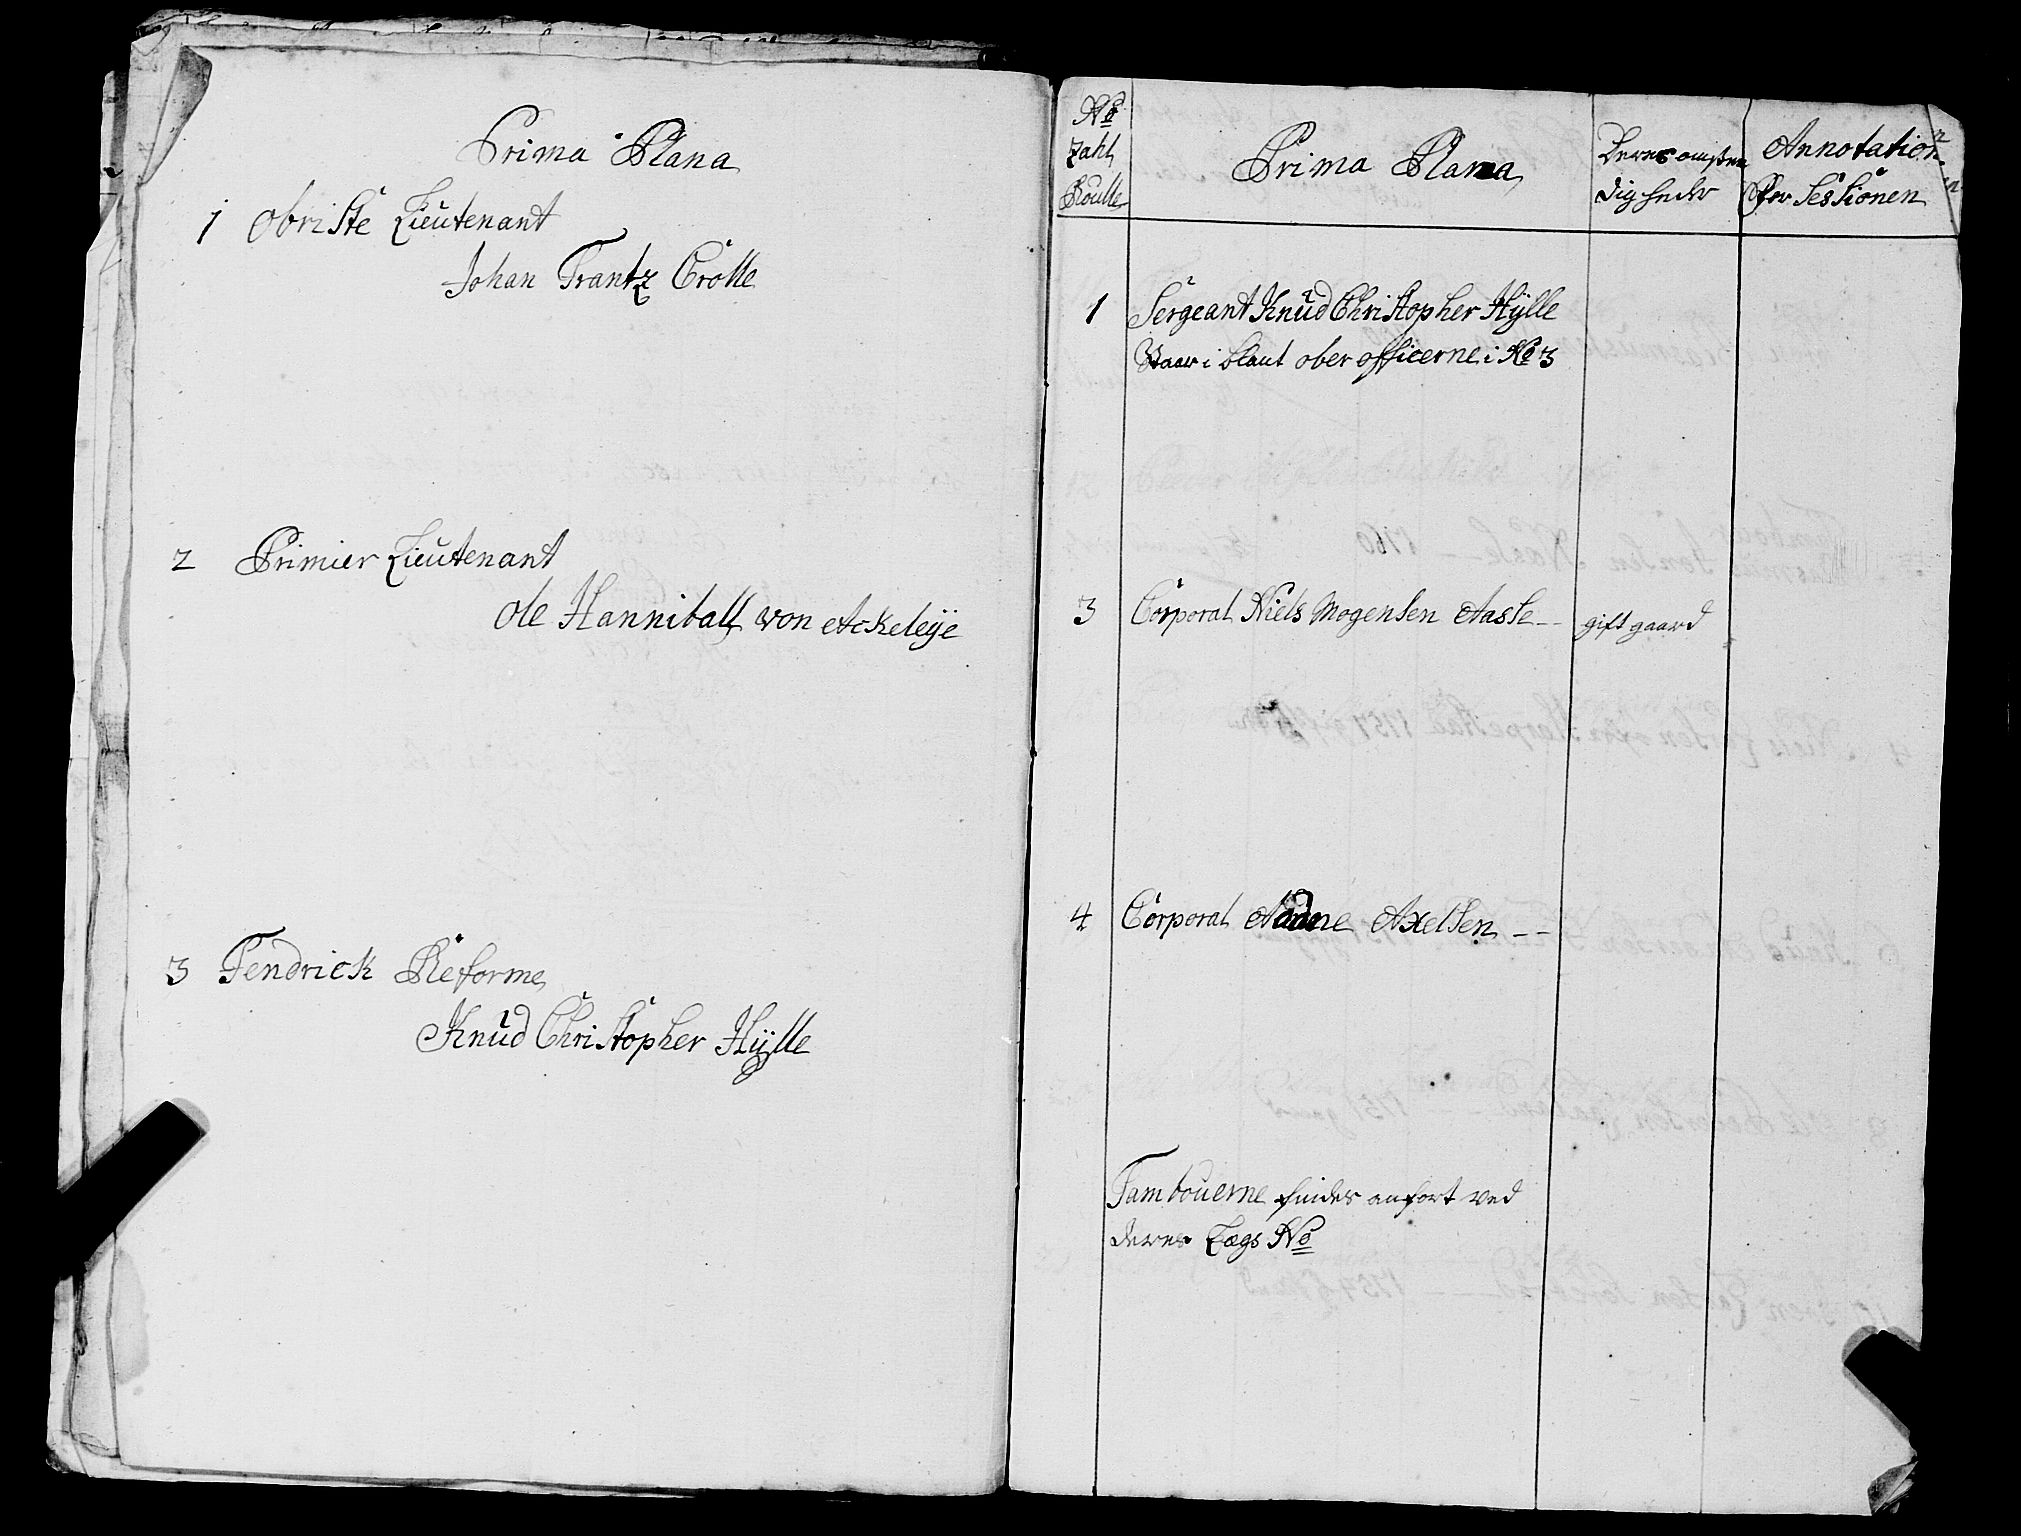 Prima Plana
1 Obriste Lieutenant
Johan Frantz Crolle
2 Primier Lieutenant
Ole Hanniball von Ackeleÿe
3 Fendrick Reforme
Knud Christopher Hÿlle
No
Zahl
Roulle
Prima Plana
Deres omsten
digheder
Annotation
for Sessionen
1 Sergeant Knud Christopher Hÿlle
Staar i blant ober officerne i No 3
3 Corporal Niels Mogensen Aasle -- gift gaard
4 Corporal Axelsen --
Tambouerne findes anfort ved
deres Lægs No